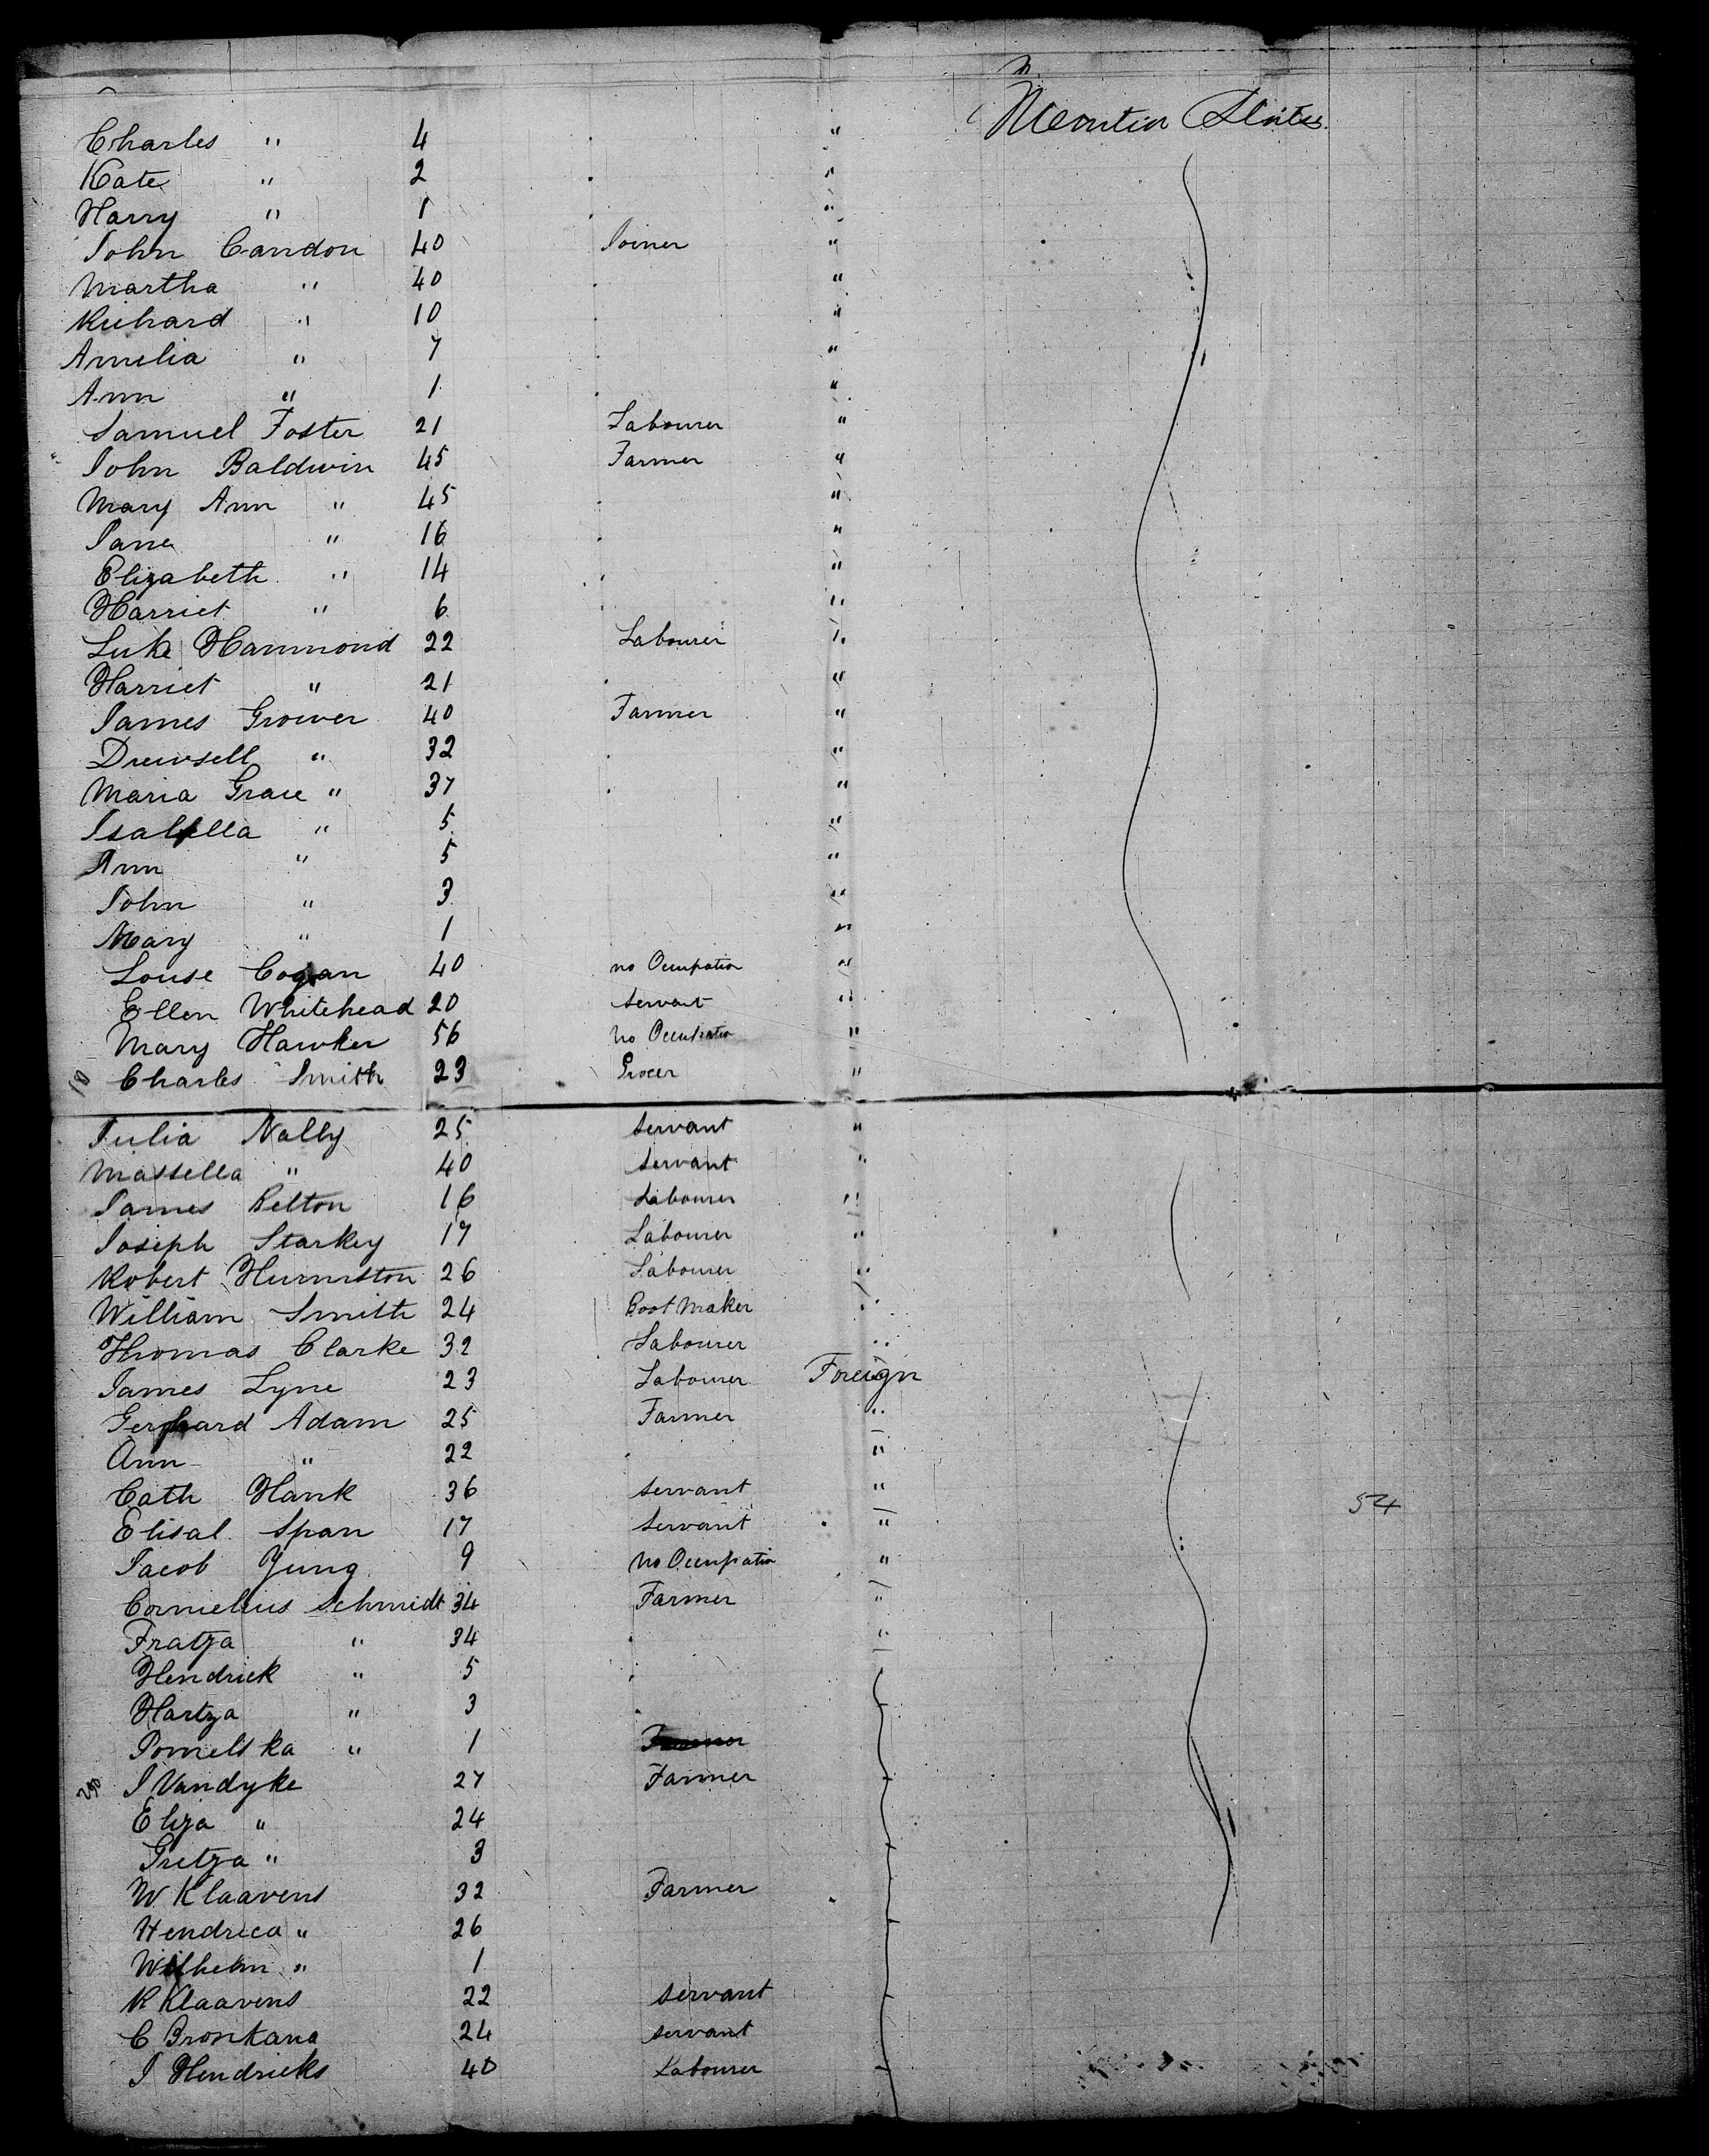 Charles " 4 "
Kate " 2 "
Harry " 1 "
John Candon 40 Joiner "
Martha " 40 "
Richard " 10 "
Amelia " 7 "
Ann " 1 "
Samuel Foster 21 Labourer "
John Baldwin 45 Farmer "
Mary Ann " 45 "
Jane " 16 "
Elizabeth " 14 "
Harriet " 6 "
Luke Hammond 22 Labourer "
Harriet " 21 "
James Grower 40 Farmer "
Drewsell " 32 "
Maria Grace " 37 "
Isabella " 5 "
Ann " 5 "
John " 3 "
Mary " 1 "
Louse Cogan 40 no Occupation "
Ellen Whitehead 20 Servant "
Mary Hawker 56 no Occupation "
Charles Smith 23 Grocer "
Julia Nally 25 Servant "
Massella " 40 Servant "
James Relton 16 Labourer "
Joseph Starkey 17 Labourer "
Robert Hurmston 26 Labourer "
William Smith 24 Boot Maker "
Thomas Clarke 32 Labourer "
James Lyne 23 Labourer Foreign
Gerhard Adam 25 Farmer "
Ann " 22 "
Cath Hank 36 Servant "
54
Elisal Span 17 Servant "
Jacob Yung 9 no Occupation "
Cornelius Schmidt 34 Farmer "
Fratza " 34 "
Hendrick " 5
Hartza " 3
Pomelska " 1 Farmer
J Vandyke 27 Farmer
Eliza " 24
Gretza " 3
W Klaavens 32 Farmer
Hendreca " 26
Wilhelm " 1
R Klaavens 22 Servant
C Bronkana 24 Servant
J Hendricks 40 Labourer